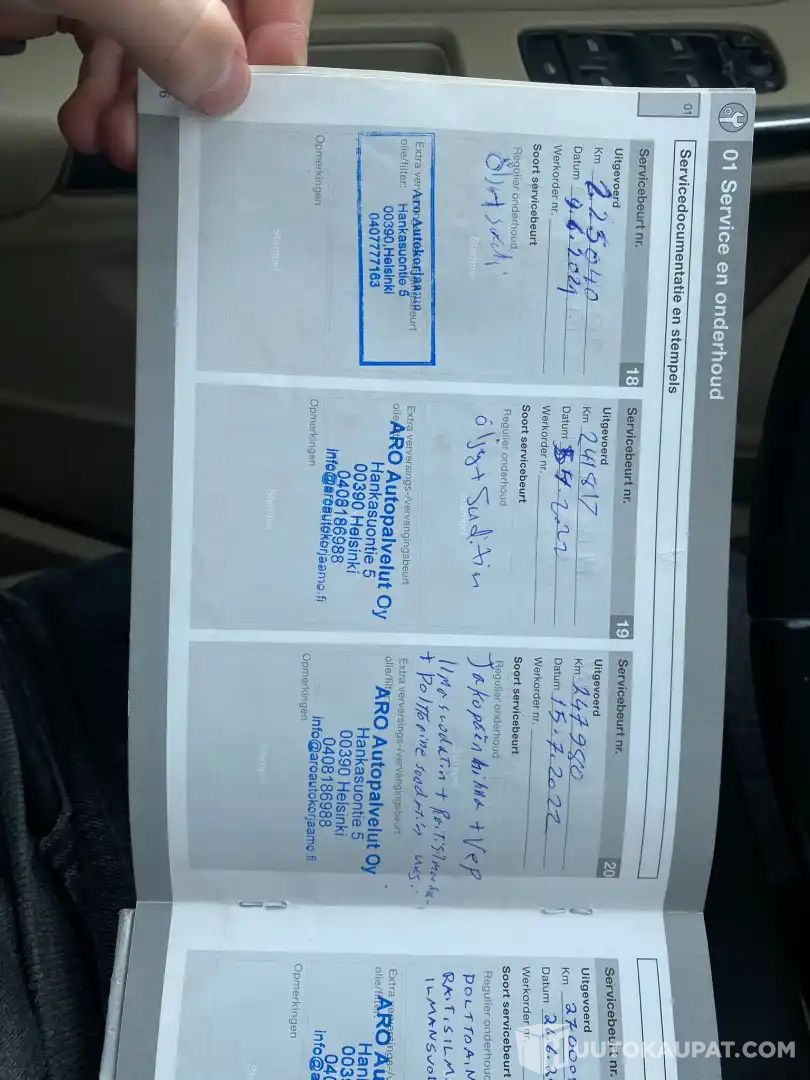 01 Service en onderhoud
01
Servicedocumentatie en stempels
Servicebeurt nr.
18
Uitgevoerd
Km 225040
Datum 9.6.2021
Werkorder nr.
Soort servicebeurt
Regulier onderhoud
Stempel
Extra verversings-/vervangingsbeurt
olie/filter:
Aro Autokorjaamo
Hankasuontie 5
00390, Helsinki
0407777163
Opmerkingen
Stempel
Servicebeurt nr.
19
Uitgevoerd
Km 241817
Datum 4.2.22
Werkorder nr.
Soort servicebeurt
Regulier onderhoud
öljy + Suditin
Stempel
Extra verversings-/vervangingsbeurt
ARO Autopalvelut Oy
Hankasuontie 5
00390 Helsinki
0408186988
info@aroautokorjaamo.fi
Opmerkingen
Stempel
Servicebeurt nr.
20
Uitgevoerd
Km 247980
Datum 15.7.2022
Werkorder nr.
Soort servicebeurt
Regulier onderhoud
Jakopään hihna + Vep
Ilmosuodatin + Raitisilmansu-
+ polttoaine suodatin uus.
Extra verversings-/vervangingsbeurt
ARO Autopalvelut Oy
Hankasuontie 5
00390 Helsinki
0408186988
info@aroautokorjaamo.fi
Opmerkingen
Stempel
Servicebeurt
Uitgevoerd
Km
Datum
Werkorder nr.
Soort servicebeurt
Regulier onderhoud
POLTTOAIN
RAITISILM
ILMANSUO
Extra verversings-/v
ARO Au
Han
003
040
info@a
Opmerkingen
UUTOKAUPAT.COM